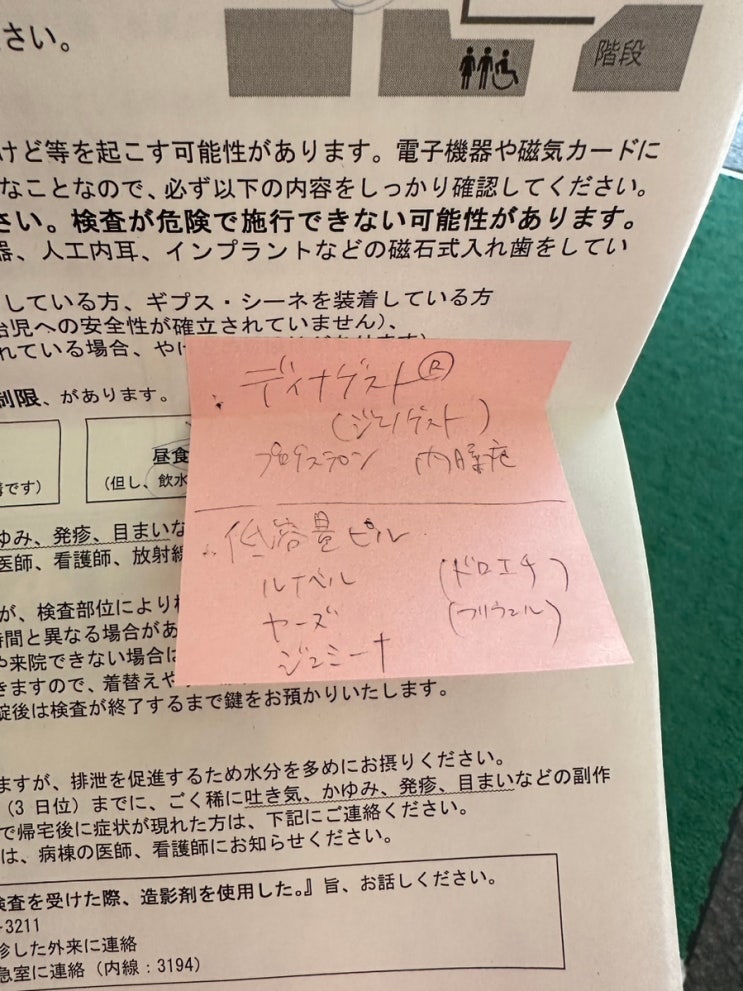 さい。
階段
けど等を起こす可能性があります。電子機器や磁気カードに
なことなので、必ず以下の内容をしっかり確認してください。
さい。検査が危険で施行できない可能性があります。
器、人工内耳、インプラントなどの磁石式入れ歯をしてい
している方、ギプス・シーネを装着している方
児への安全性が確立されていません)、
れている場合、や
制限、があります。
昼食
です)
(但し、飲水
・ディナゲスト®
(ジエノゲスト)
プロゲステロン 内膜症
・低容量ピル
ルナベル (ドロエチ)
ヤーズ (フリウェル)
ジェミーナ
かゆみ、発疹、目まいな
医師、看護師、放射線
が、検査部位により
時間と異なる場合があ
や来院できない場合は
きますので、着替えや
錠後は検査が終了するまで鍵をお預かりいたします。
ますが、排泄を促進するため水分を多めにお摂りください。
(3日位)までに、ごく稀に吐き気、かゆみ、発疹、目まいなどの副作
で帰宅後に症状が現れた方は、下記にご連絡ください。
は、病棟の医師、看護師にお知らせください。
検査を受けた際、造影剤を使用した。』旨、お話しください。
-3211
診した外来に連絡
急室に連絡(内線:3194)